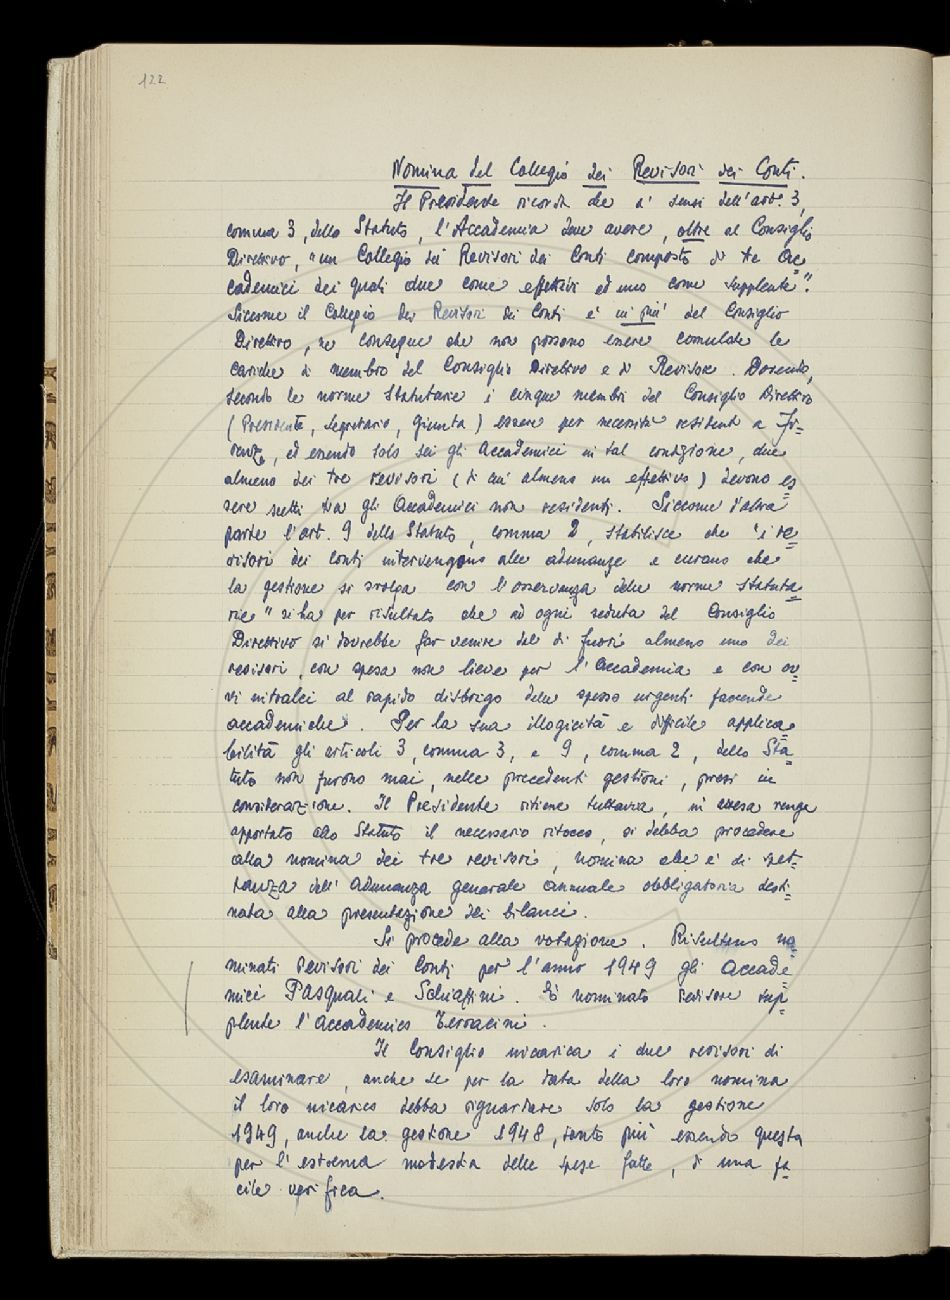 122
Nomina del Collegio dei Revisori dei Conti.
Il Presidente ricorda che a' sensi dell'art. 3,
comma 3, dello Statuto, l'Accademia deve avere, oltre al Consiglio
Direttivo, "un Collegio dei Revisori dei Conti composto di tre Ac=
cademici dei quali due come effettivi ed uno come supplente".
Siccome il Collegio dei Revisori dei Conti è in più del Consiglio
Direttivo, ne consegue che non possono essere cumulate le
cariche di membro del Consiglio Direttivo e di Revisore. Dovendo,
secondo le norme statutarie i cinque membri del Consiglio Direttivo
(Presidente, Segretario, Giunta) essere per necessità residenti a Fi=
renze, ed essendo solo sei gli Accademici in tal condizione, due
almeno dei tre revisori (di cui almeno un effettivo) devono es
sere scelti tra gli Accademici non residenti. Siccome d'altra
parte l'art. 9 dello Statuto, comma 2, stabilisce che "i re=
visori dei conti intervengono alle adunanze e curano che
la gestione si svolga con l'osservanza delle norme statuta=
rie" si ha per risultato che ad ogni seduta del Consiglio
Direttivo si dovrebbe far venire dal di fuori almeno uno dei
revisori, con spesa non lieve per l'Accademia e con ov=
vi intralci al rapido disbrigo delle spesso urgenti faccende
accademiche. Per la sua illogicità e difficile applica=
bilità gli articoli 3, comma 3, e 9, comma 2, dello Sta=
tuto non furono mai, nelle precedenti gestioni, presi in
considerazione. Il Presidente ritiene tuttavia, in attesa venga
apportato allo Statuto il necessario ritocco, si debba procedere
alla nomina dei tre revisori, nomina che è di spet=
tanza dell'Adunanza generale annuale obbligatoria desti=
nata alla presentazione dei bilanci.
Si procede alla votazione. Risultano no=
minati revisori dei Conti per l'anno 1949 gli Accade=
mici Pasquali e Schiaffini. È nominato revisore sup=
plente l'Accademico Terracini.
Il Consiglio incarica i due revisori di
esaminare, anche se per la data della loro nomina
il loro incarico debba riguardare solo la gestione
1949, anche la gestione 1948, tanto più essendo questa
per l'estrema modestia delle spese fatte, di una fa=
cile verifica.